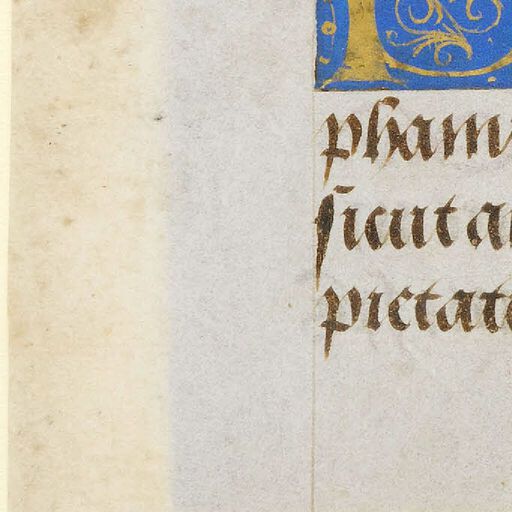 pham
sicut a
pietate